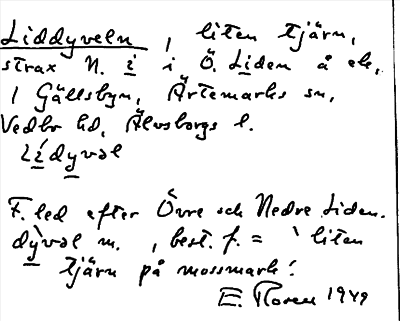 Liddyveln, liten tjärn,
strax N. i i Ö. Liden å ek.
i Gällsbyn, Ärtemarks sn,
Vedbo hd, Älvsborgs l.
Lídyvəl
F. led efter Övre och Nedre Liden.
dỳvəl m., best. f. = `liten
tjärn på mossmark´.
E. Noreen 1949